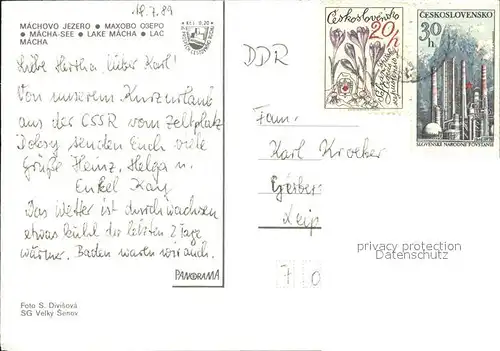 18.7.89
MÁCHOVO JEZERO ● MAXOBO O3EPO
● MÁCHA-SEE ● LAKE MÁCHA ● LAC
MÁCHA
Kčs 0,20
Liebe Hertha, lieber Karl!
Von unserem Kurzurlaub
aus der CSSR vom Zeltplatz
Doksy senden Euch viele
Grüße Heinz, Helga u.
Enkel Kay
Das Wetter ist durchwachsen
etwas kühl die letzten 2 Tage
wärmer. Baden waren wir auch.
PANORAMA
Foto S. Divišová
SG Velký Šenov
DDR
Československo
20h
ČESKOSLOVENSKO
30h
SLOVENSKÉ NÁRODNÉ POVSTANIE
Fam.
Karl Kroeber
Gerber
Leip
privacy protection
Datenschutz
7 0